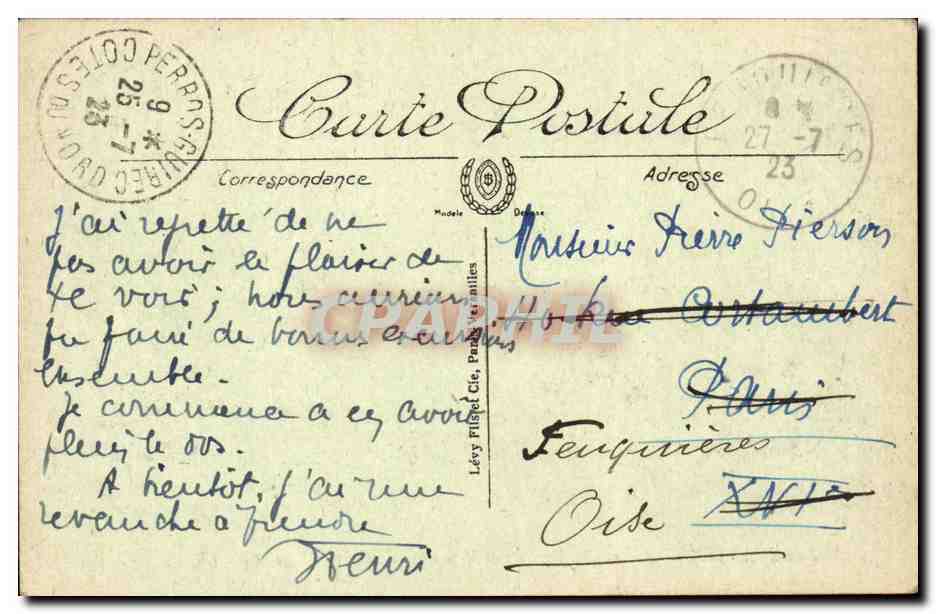 PERROS-GUIREC CÔTES DU NORD
9 *
25 -7
23
27 -7
23
Carte Postale
Correspondance
Adresse
Modèle Déposé
J'ai regretté de ne
pas avoir le plaisir de
te voir ; nous aurions
pu faire de bonnes excursions
ensemble.
Je commence à en avoir
plein le dos.
A bientôt, j'ai une
revanche à prendre
Henri
Lévy Fils et Cie, Paris Versailles
CPAPHIL
Monsieur Pierre Pierson
40 rue Cortambert
Paris
XVIe
Feuquières
Oise